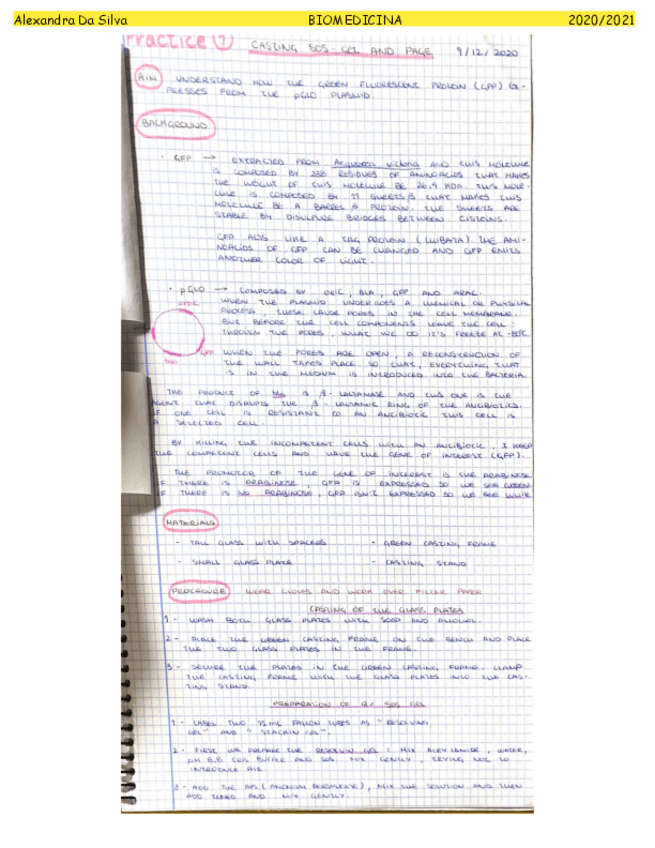 Alexandra Da Silva BIOMEDICINA 2020/2021
Practice 1 CASTING SDS-GEL AND PAGE 9/12/2020
AIM UNDERSTAND HOW THE GREEN FLUORESCENT PROTEIN (GFP) EX-
PRESSES FROM THE pGLO PLASMID.
BACKGROUND
· GFP → EXTRACTED FROM Aequorea victoria AND THIS MOLECULE
IS COMPOSED BY 238 RESIDUES OF AMINOACIDS THAT MAKES
THE WEIGHT OF THIS MOLECULE BE 26.9 KDa. THIS MOLE-
CULE IS COMPOSED BY 11 SHEETS β THAT MAKES THIS
MOLECULE BE A BARREL β PROTEIN. THE SHEETS ARE
STABLE BY DISULFURE BRIDGES BETWEEN CISTEINS.
GFP ACTS LIKE A TAG PROTEIN (). THE AMI-
NOACIDS OF GFP CAN BE CHANGED AND GFP EMITS
ANOTHER COLOR OF LIGHT.
· pGLO → COMPOSED BY ORIC, BLA, GFP AND ARAC.
WHEN THE PLASMID UNDERGOES A CHEMICAL OR PHYSICAL
PROCESS, THESE CAUSE PORES IN THE CELL MEMBRANE.
BUT BEFORE THE CELL COMPONENTS LEAVE THE CELL
THROUGH THE PORES, WHAT WE DO IT'S FREEZE AT
GFP WHEN THE PORES ARE OPEN, A RECONSTRUCTION OF
THE WALL TAKES PLACE SO THAT, EVERYTHING THAT
IS IN THE MEDIUM IS INTRODUCED INTO THE BACTERIA.
THE PRODUCT OF bla IS β-LACTAMASE AND THIS ONE IS THE
AGENT THAT DISRUPTS THE β-LACTAMIC RING OF THE ANTIBIOTICS.
IF ONE CELL IS RESISTANT TO AN ANTIBIOTIC THIS CELL IS
A SELECTED CELL.
BY KILLING THE INCOMPETENT CELLS WITH AN ANTIBIOTIC, I KEEP
THE COMPETENT CELLS AND HAVE THE GENE OF INTEREST (GFP).
THE PROMOTOR OF THE GENE OF INTEREST IS THE ARABINOSE
IF THERE IS ARABINOSE, GFP IS EXPRESSED SO WE SEE GREEN
IF THERE IS NO ARABINOSE, GFP ISN'T EXPRESSED SO WE SEE WHITE
MATERIALS
- TALL GLASS WITH SPACERS - GREEN CASTING FRAME
- SMALL GLASS PLATE - CASTING STAND
PROCEDURE WEAR GLOVES AND WORK OVER FILTER PAPER
CASTING OF THE GLASS PLATES
1 - WASH BOTH GLASS PLATES WITH SOAP AND ALCOHOL.
2 - PLACE THE GREEN CASTING FRAME ON THE BENCH AND PLACE
THE TWO GLASS PLATES IN THE FRAME.
3 - SECURE THE PLATES IN THE GREEN CASTING FRAME. CLAMP
THE CASTING FRAME WITH THE GLASS PLATES INTO THE CAS-
TING STAND.
PREPARATION OF SDS GEL
1 - LABEL TWO FALCON TUBES AS "RESOLVING
GEL" AND "STACKIN GEL".
2 - FIRST WE PREPARE THE RESOLVIN GEL: MIX ACRYLAMIDE, WATER,
pH 8.8 TRIS BUFFER AND SDS. MIX GENTLY, TRYING NOT TO
INTRODUCE AIR.
3 - ADD THE APS (), MIX THE SOLUTION AND THEN
ADD TEMED AND MIX GENTLY.